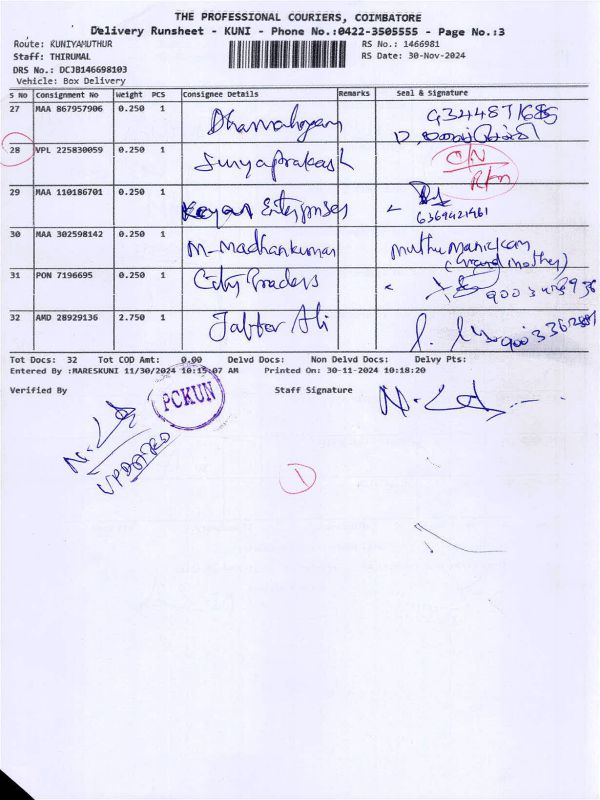 THE PROFESSIONAL COURIERS, COIMBATORE
Delivery Runsheet - KUNI - Phone No.:0422-3505555 - Page No.:3
Route: KUNIYAMUTHUR RS No.: 1466981
Staff: THIRUMAL RS Date: 30-Nov-2024
DRS No.: DCJB146698103
Vehicle: Box Delivery
S No Consignment No Weight PCS Consignee Details Remarks Seal & Signature
27 MAA 867957906 0.250 1
28 VPL 225830059 0.250 1 Suryaprakash
29 MAA 110186701 0.250 1 Enterprises
6369421461
30 MAA 302598142 0.250 1 M-Madhankumar Muthu Manickam
(Grand mother)
31 PON 7196695 0.250 1 City Traders
32 AMD 28929136 2.750 1 Jabbar Ali
Tot Docs: 32 Tot COD Amt: 0.00 Delvd Docs: Non Delvd Docs: Delvy Pts:
Entered By :MARESKUNI 11/30/2024 10:15:07 AM Printed On: 30-11-2024 10:18:20
Verified By Staff Signature
PCKUN
UPDATED
1